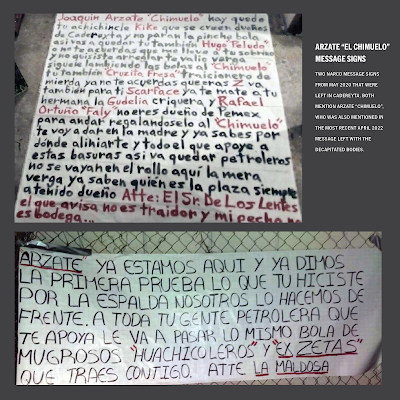 Joaquin Arzate "Chimuelo" hay quedo
tu achichincle Kike que se creen dueños
de Cadereyta y para ti pinche bola
asi vas a quedar tu también "Hugo Peludo"
a no te acuerdas que me lleve a tu sobrino
y no quisiste arredrar te valio verga
siguele lambiendo las bolas al "Chimuelo"
tu también "Cruzita Frasa" traicionero de
mierda ya no te acuerdas que eras Z va
también para ti Scarface ya te mate a tu
hermana la Gudelia criquera, y Rafael
Ortuño "Faly" no eres dueño de Temex
para andar regalandoselo al "Chimuelo"
te voy a dar en la madre y ya sabes por
dónde alihiarte y todo el que apoye a
estas basuras asi va quedar petroleros
no se vayan en el rollo aquí la mera
verga ya saben quien es la plaza siempre
a tenido dueño Atte: El Sr. De Los Lentes
el que avisa no es traidor y mi pecho no
es bodega...
ARZATE "EL CHIMUELO"
MESSAGE SIGNS
TWO NARCO MESSAGE SIGNS
FROM MAY 2020 THAT WERE
LEFT IN CADEREYTA. BOTH
MENTION ARZATE "CHIMUELO",
WHO WAS ALSO MENTIONED IN
THE MOST RECENT APRIL 2022
MESSAGE LEFT WITH THE
DECAPITATED BODIES.
ARZATE YA ESTAMOS AQUI Y YA DIMOS
LA PRIMERA PRUEBA LO QUE TU HICISTE
POR LA ESPALDA NOSOTROS LO HACEMOS DE
FRENTE. A TODA TU GENTE PETROLERA QUE
TE APOYA LE VA A PASAR LO MISMO BOLA DE
MUGROSOS "HUACHICOLEROS" Y "EX ZETAS"
QUE TRAES CONTIGO. ATTE LA MALDOSA